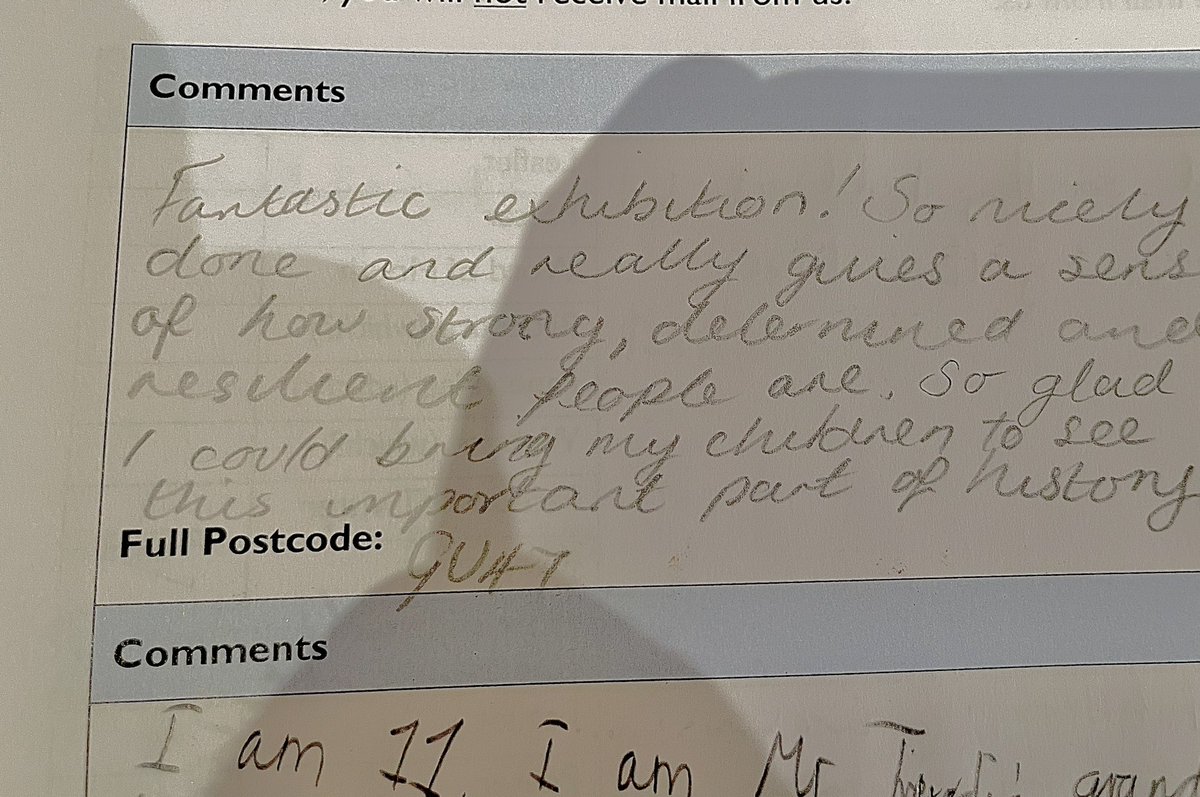 will not receive mail from us.
Comments
Fantastic exhibition! So nicely
done and really gives a sens
of how strong, determined and
resilient people are. So glad
I could bring my children to see
this important part of history
Full Postcode: GU47
Comments
I am 11. I am Mr grand